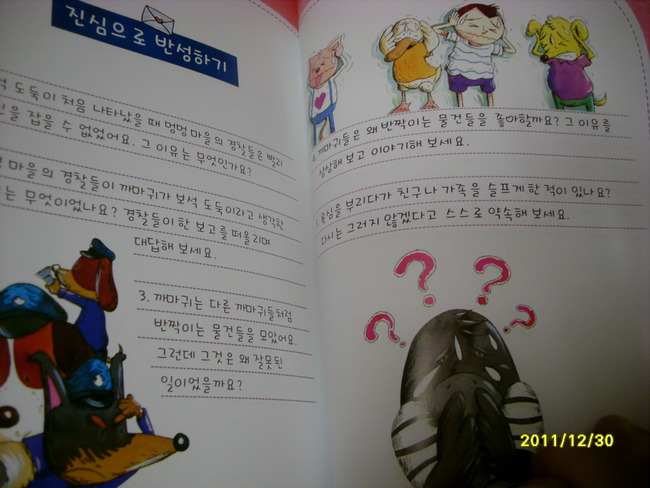 진심으로 반성하기
도둑이 처음 나타났을 때 멍멍 마을의 경찰들은 빨리
잡을 수 없었어요. 그 이유는 무엇인가요?
마을의 경찰들이 까마귀가 보석 도둑이라고 생각한
는 무엇이었나요? 경찰들이 한 보고를 떠올리며
대답해 보세요.
3. 까마귀는 다른 까마귀들처럼
반짝이는 물건들을 모았어요.
그런데 그것은 왜 잘못된
일이었을까요?
까마귀들은 왜 반짝이는 물건들을 좋아할까요? 그 이유를
상상해 보고 이야기해 보세요.
욕심을 부리다가 친구나 가족을 슬프게 한 적이 있나요?
다시는 그러지 않겠다고 스스로 약속해 보세요.
? ? ? ?
2011/12/30